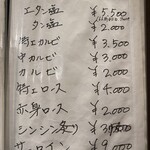 エタン塩 ¥5,500
タン塩 ¥2,000
特上カルビ ¥3,500
中カルビ ¥3,000
カルビ ¥2,000
特上ロース ¥4,000
赤身ロース ¥2,000
シンシン炙り
サーロイン ¥9,000